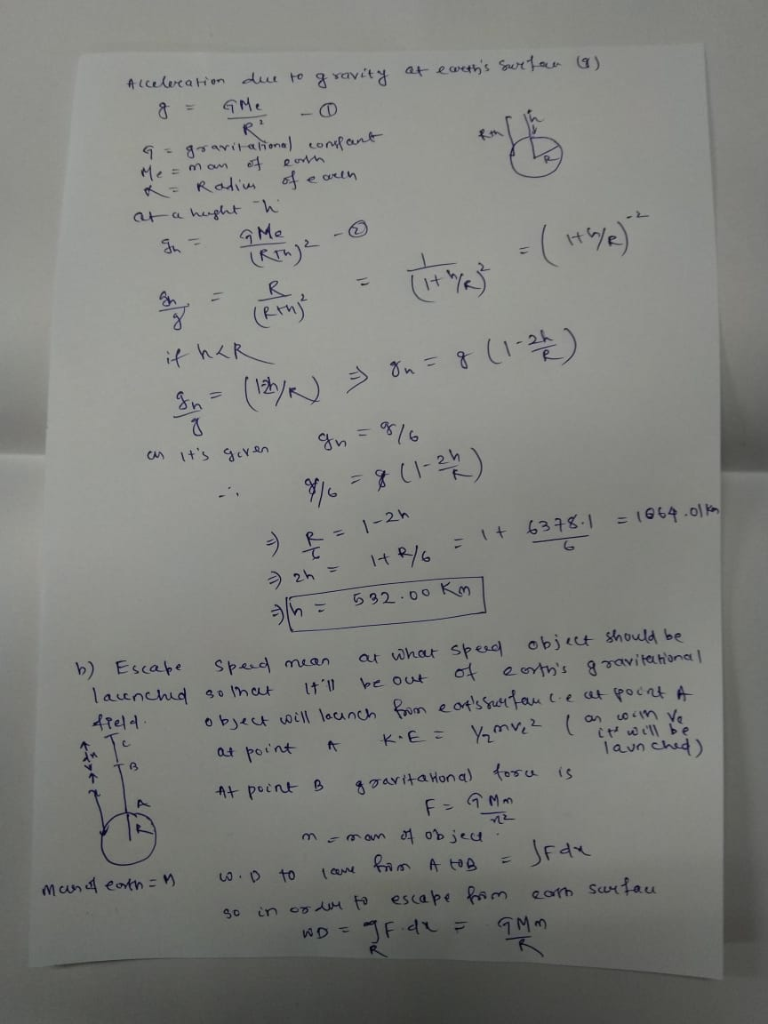 Acceleration due to gravity at earth's surface (g)
g = GMe/R² - ①
G = gravitational constant
Me = mass of earth
R = Radius of earth
R+h h R
at a height 'h'
gh = GMe/(R+h)² - ②
gh/g = R/(R+h)² = 1/(1+h/R)² = (1+h/R)⁻²
if h<R
gh/g = (1-2h/R) ⇒ gh = g (1-2h/R)
as it's given gh = g/6
∴ g/6 = g (1-2h/R)
⇒ R/6 = 1-2h
⇒ 2h = 1+R/6 = 1+ 6378.1/6 = 1064.01 km
⇒ h = 532.00 Km
b) Escape speed mean at what speed object should be
launched so that it'll be out of earth's gravitational
field. object will launch from earth's surface i.e at point A
at point A K.E = ½mve² (as with ve it will be launched)
At point B gravitational force is
F = GMm/x²
m = mass of object.
C
B
A
R
Mass of earth = M
W.D to leave from A to B = ∫Fdx
so in order to escape from earth surface
WD = ∫R F.dx = GMm/R